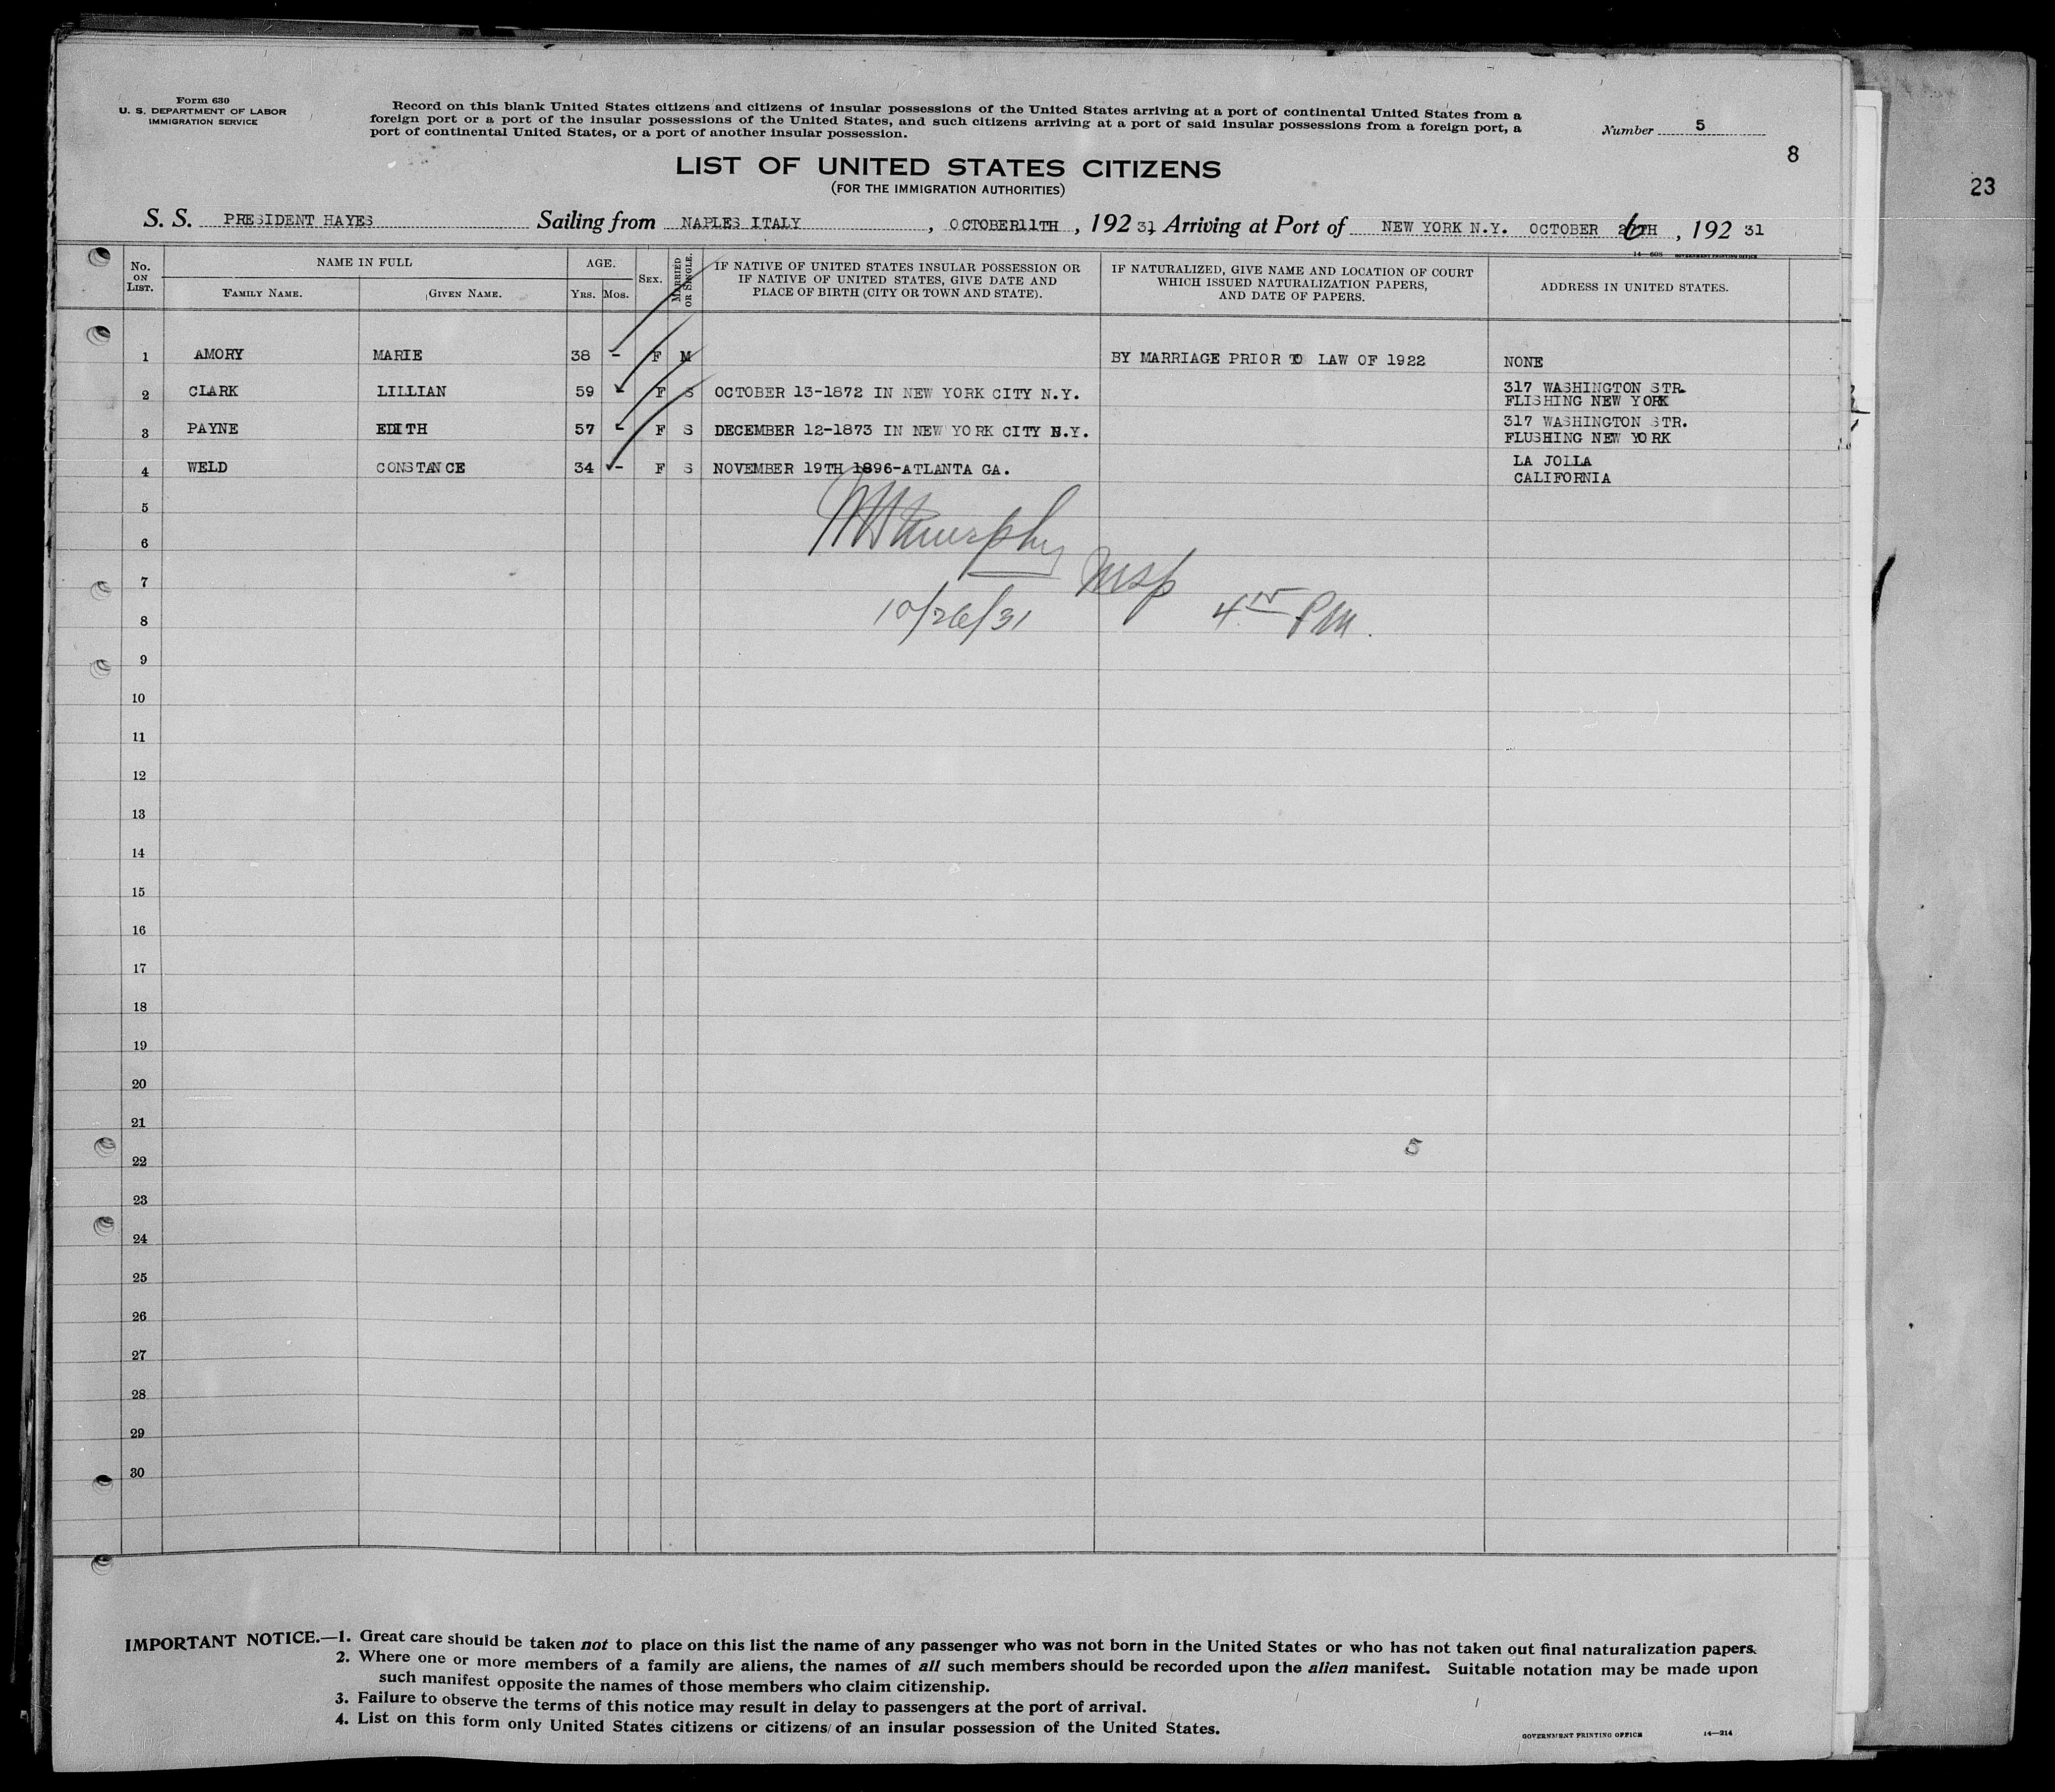 Form 630
U. S. DEPARTMENT OF LABOR
IMMIGRATION SERVICE
Record on this blank United States citizens and citizens of insular possessions of the United States arriving at a port of continental United States from a
foreign port or a port of the insular possessions of the United States, and such citizens arriving at a port of said insular possessions from a foreign port, a
port of continental United States, or a port of another insular possession.
Number 5
8
23
LIST OF UNITED STATES CITIZENS
(FOR THE IMMIGRATION AUTHORITIES)
S. S. PRESIDENT HAYES Sailing from NAPLES ITALY, OCTOBER11TH, 192 31, Arriving at Port of NEW YORK N.Y. OCTOBER 26TH, 192 31
14—608 GOVERNMENT PRINTING OFFICE
No. ON LIST.
NAME IN FULL
FAMILY NAME.
GIVEN NAME.
AGE.
YRS. MOS.
SEX.
MARRIED OR SINGLE.
IF NATIVE OF UNITED STATES INSULAR POSSESSION OR
IF NATIVE OF UNITED STATES, GIVE DATE AND
PLACE OF BIRTH (CITY OR TOWN AND STATE).
IF NATURALIZED, GIVE NAME AND LOCATION OF COURT
WHICH ISSUED NATURALIZATION PAPERS,
AND DATE OF PAPERS.
ADDRESS IN UNITED STATES.
1 AMORY MARIE 38 - F M BY MARRIAGE PRIOR TO LAW OF 1922 NONE
2 CLARK LILLIAN 59 - F S OCTOBER 13-1872 IN NEW YORK CITY N.Y. 317 WASHINGTON STR.
FLISHING NEW YORK
3 PAYNE EDITH 57 - F S DECEMBER 12-1873 IN NEW YORK CITY N.Y. 317 WASHINGTON STR.
FLUSHING NEW YORK
4 WELD CONSTANCE 34 - F S NOVEMBER 19TH 1896-ATLANTA GA. LA JOLLA
CALIFORNIA
5
6
Murphy
7
Insp
8
10/26/31
PM.
9
10
11
12
13
14
15
16
17
18
19
20
21
5
22
23
24
25
26
27
28
29
30
IMPORTANT NOTICE.—1. Great care should be taken not to place on this list the name of any passenger who was not born in the United States or who has not taken out final naturalization papers.
2. Where one or more members of a family are aliens, the names of all such members should be recorded upon the alien manifest. Suitable notation may be made upon
such manifest opposite the names of those members who claim citizenship.
3. Failure to observe the terms of this notice may result in delay to passengers at the port of arrival.
4. List on this form only United States citizens or citizens of an insular possession of the United States.
GOVERNMENT PRINTING OFFICE 14—214